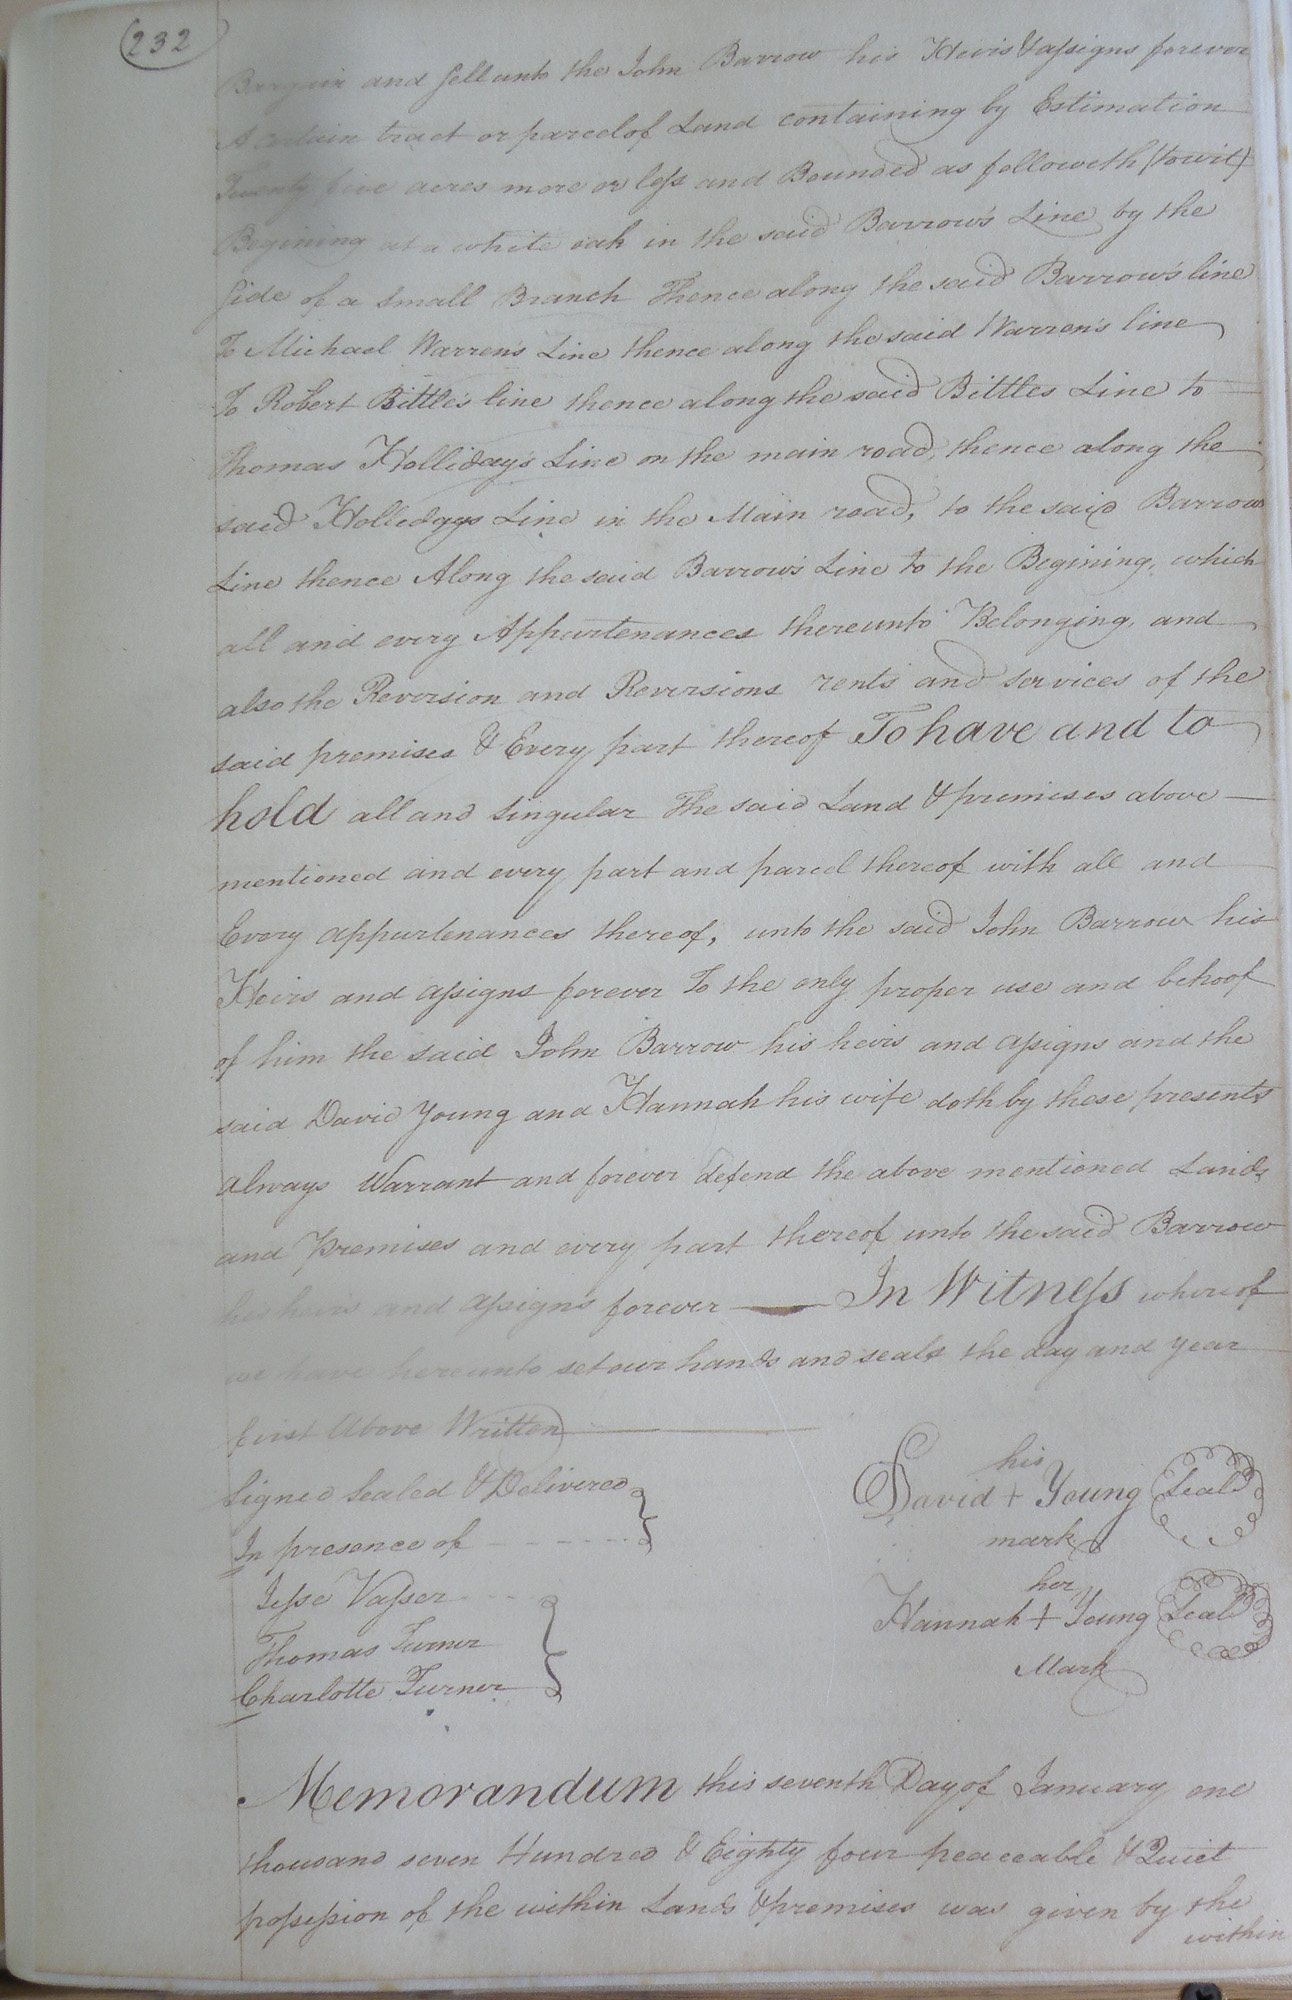 232
Bargain and Sell unto the John Barrow his Heirs & assigns forever
A certain tract or parcel of Land containing by Estimation
Twenty five acres more or less and Bounded as followeth (towit)
Begining at a white oak in the said Barrow's Line by the
Side of a Small Branch Thence along the said Barrow's line
To Michael Warren's Line thence along the said Warren's line
To Robert Bittle's line thence along the said Bittles Line to
Thomas Holliday's Line on the main road, thence along the
said Holledays Line in the Main road, to the said Barrows
Line thence Along the said Barrow's Line to the Begining, which
all and every Appurtenances thereunto Belonging, and
also the Reversion and Reversions rents and services of the
said premises & Every part thereof To have and to
hold all and Singular The said Land & premises above
mentioned and every part and parcel thereof with all and
Every appurtenances thereof, unto the said John Barrow his
Heirs and assigns forever To the only proper use and behoof
of him the said John Barrow his heirs and assigns and the
said David Young and Hannah his wife doth by these presents
always Warrant and forever defend the above mentioned Lands
and Premises and every part thereof unto the said Barrow
his heirs and assigns forever — In Witness whereof
we have hereunto set our hands and seals the day and year
first above Written
Signed Sealed & Delivered
In presence of
Jesse Vasser
Thomas Turner
Charlotte Turner
his
David + Young Seal
mark
her
Hannah + Young Seal
Mark
Memorandum this seventh Day of January one
thousand seven Hundred & Eighty four peaceable & Quiet
possession of the within Lands & premises was given by the
within